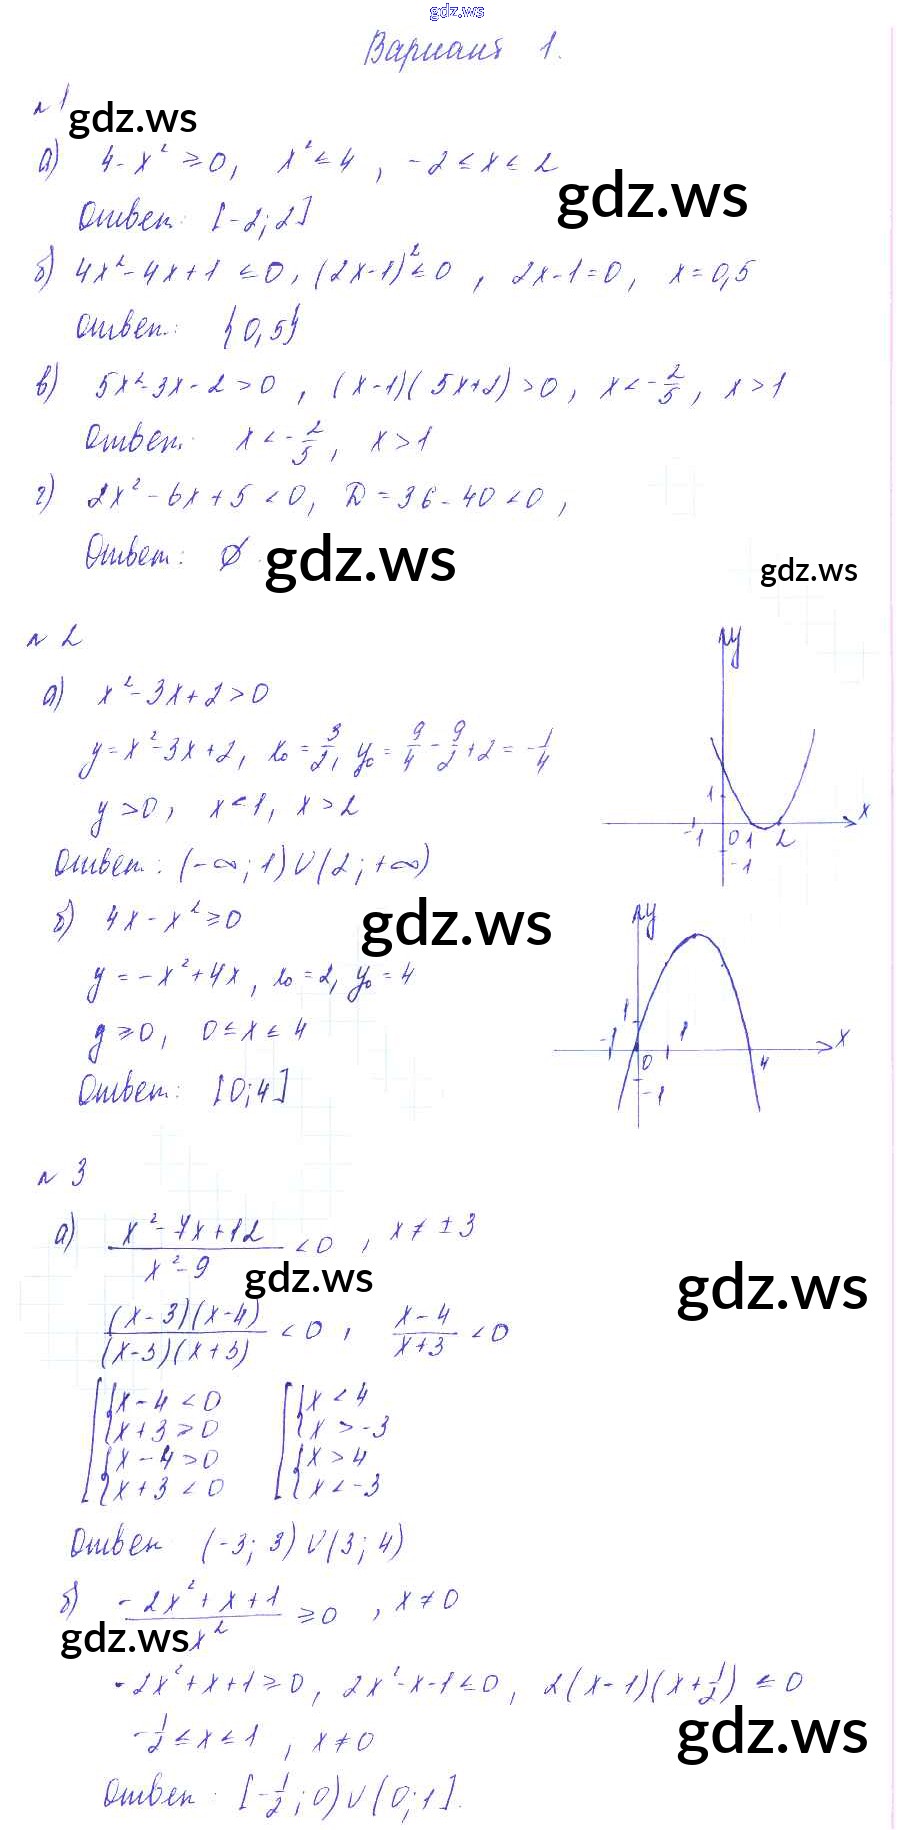 gdz.ws
Вариант 1.
№1
gdz.ws
а) 4-x² ≥ 0, x² ≤ 4, -2 ≤ x ≤ 2
gdz.ws
Ответ: [-2; 2]
б) 4x²-4x+1 ≤ 0, (2x-1)² ≤ 0, 2x-1=0, x=0,5
Ответ: {0,5}
в) 5x²-3x-2 > 0, (x-1)(5x+2) > 0, x < -2/5, x > 1
Ответ: x < -2/5, x > 1
г) 2x²-6x+5 < 0, D = 36-40 < 0,
Ответ: ∅.
gdz.ws
gdz.ws
№2
а) x²-3x+2 > 0
y = x²-3x+2, x₀ = 3/2, y₀ = 9/4 - 9/2 + 2 = -1/4
y > 0, x < 1, x > 2
Ответ: (-∞; 1) ∪ (2; +∞)
y
1
x
-1 0 1 2
-1
б) 4x - x² ≥ 0
gdz.ws
y = -x²+4x, x₀ = 2, y₀ = 4
y ≥ 0, 0 ≤ x ≤ 4
Ответ: [0; 4]
y
1
-1 1 x
0 4
-1
№3
а) x²-7x+12 / x²-9 < 0, x ≠ ±3
gdz.ws
gdz.ws
(x-3)(x-4) / (x-3)(x+3) < 0, x-4 / x+3 < 0
[ { x-4 < 0 [ { x < 4
{ x+3 > 0 { x > -3
{ x-4 > 0 { x > 4
{ x+3 < 0 { x < -3
Ответ (-3; 3) ∪ (3; 4)
б) -2x²+x+1 / x² ≥ 0, x ≠ 0
gdz.ws
-2x²+x+1 ≥ 0, 2x²-x-1 ≤ 0, 2(x-1)(x+1/2) ≤ 0
-1/2 ≤ x ≤ 1, x ≠ 0
gdz.ws
Ответ: [-1/2; 0) ∪ (0; 1].